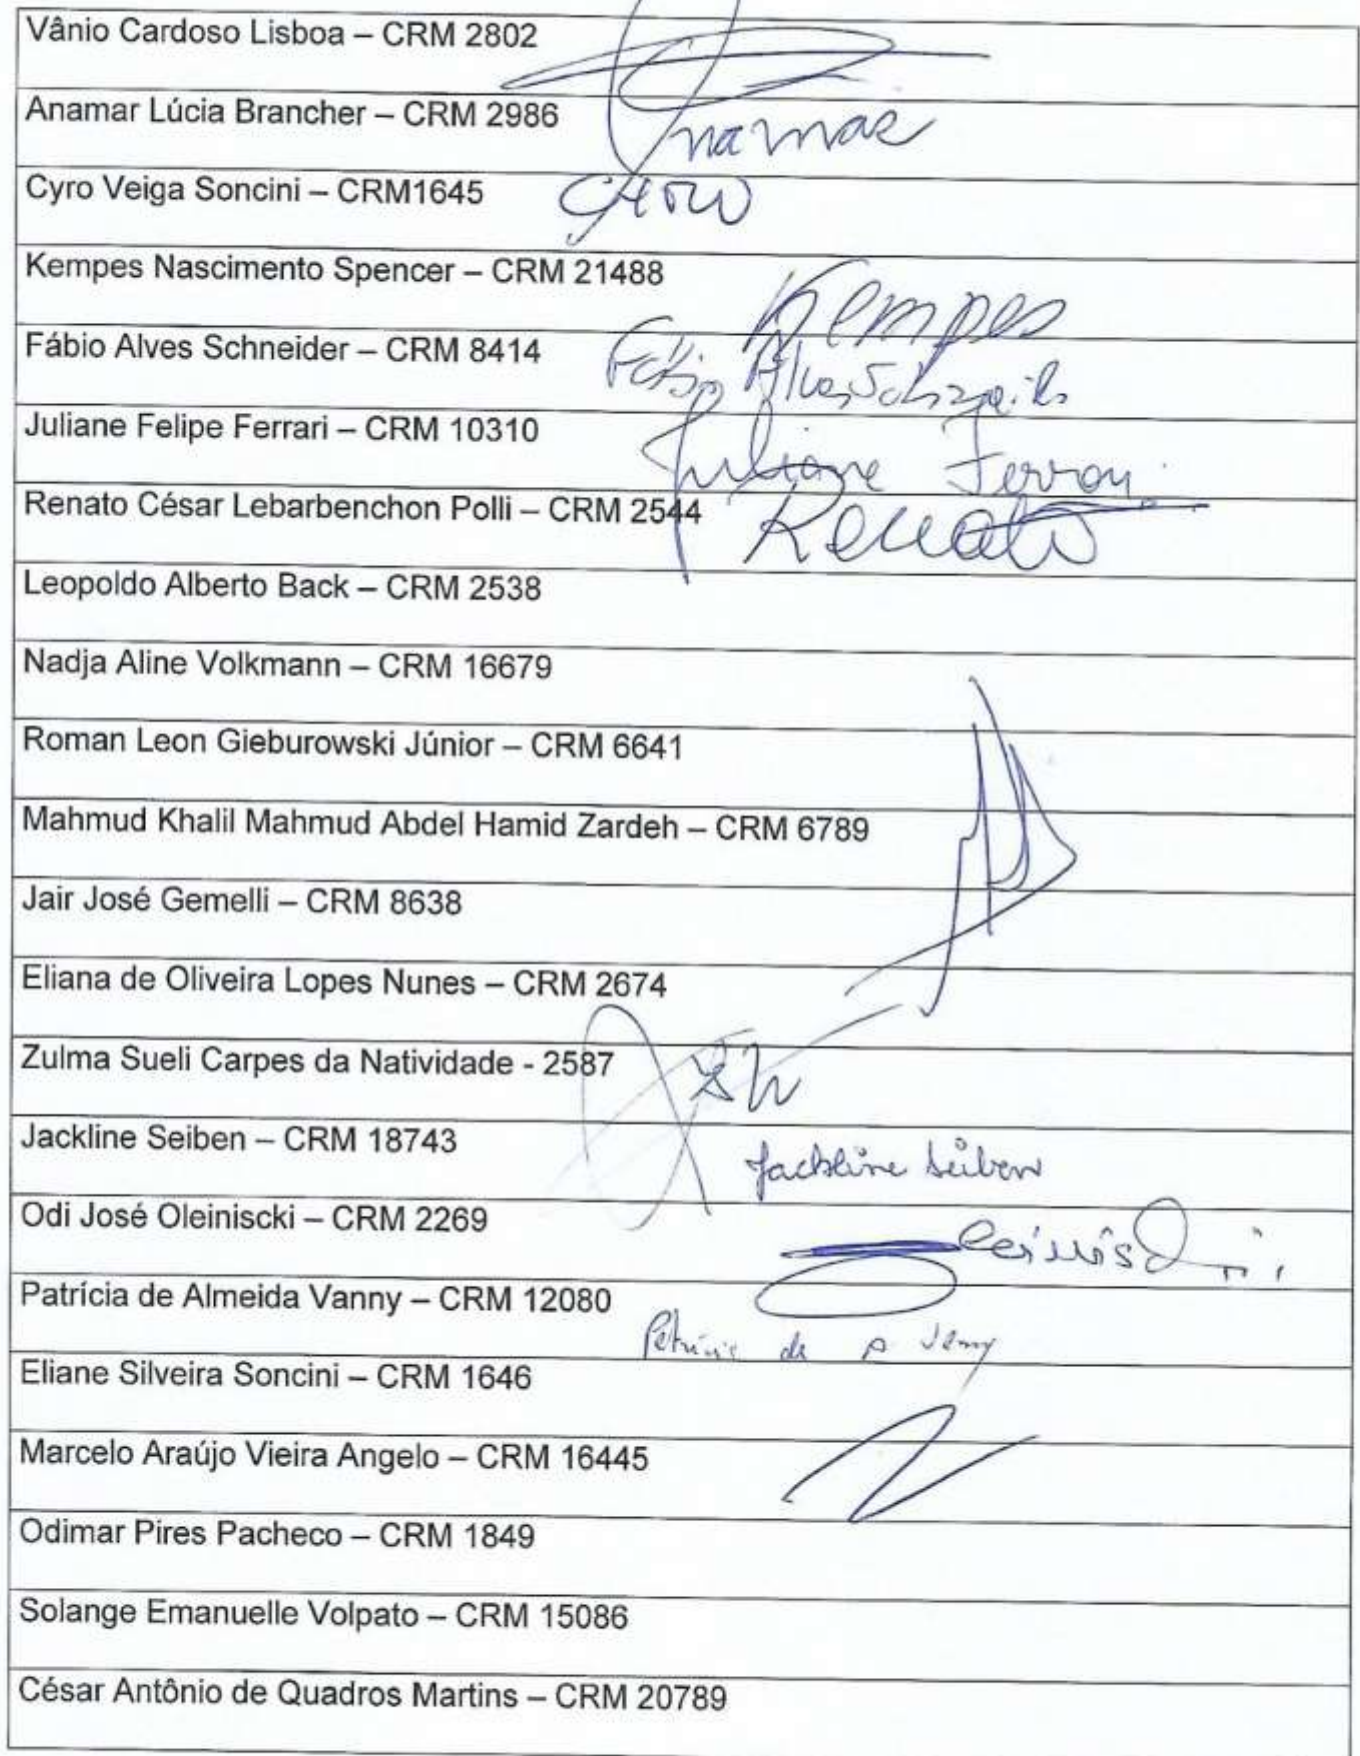 Vânio Cardoso Lisboa – CRM 2802
Anamar Lúcia Brancher – CRM 2986
namar
Cyro Veiga Soncini – CRM1645
Kempes Nascimento Spencer – CRM 21488
Kempes
Fábio Alves Schneider – CRM 8414
Fábio Alves
Juliane Felipe Ferrari – CRM 10310
Juliane Ferrari
Renato César Lebarbenchon Polli – CRM 2544
Renato
Leopoldo Alberto Back – CRM 2538
Nadja Aline Volkmann – CRM 16679
Roman Leon Gieburowski Júnior – CRM 6641
Mahmud Khalil Mahmud Abdel Hamid Zardeh – CRM 6789
Jair José Gemelli – CRM 8638
Eliana de Oliveira Lopes Nunes – CRM 2674
Zulma Sueli Carpes da Natividade - 2587
Jackline Seiben – CRM 18743
Jackline Seiben
Odi José Oleiniscki – CRM 2269
Patrícia de Almeida Vanny – CRM 12080
Patrícia de A Vanny
Eliane Silveira Soncini – CRM 1646
Marcelo Araújo Vieira Angelo – CRM 16445
Odimar Pires Pacheco – CRM 1849
Solange Emanuelle Volpato – CRM 15086
César Antônio de Quadros Martins – CRM 20789